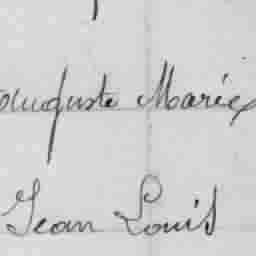 Auguste Marie
Jean Louis